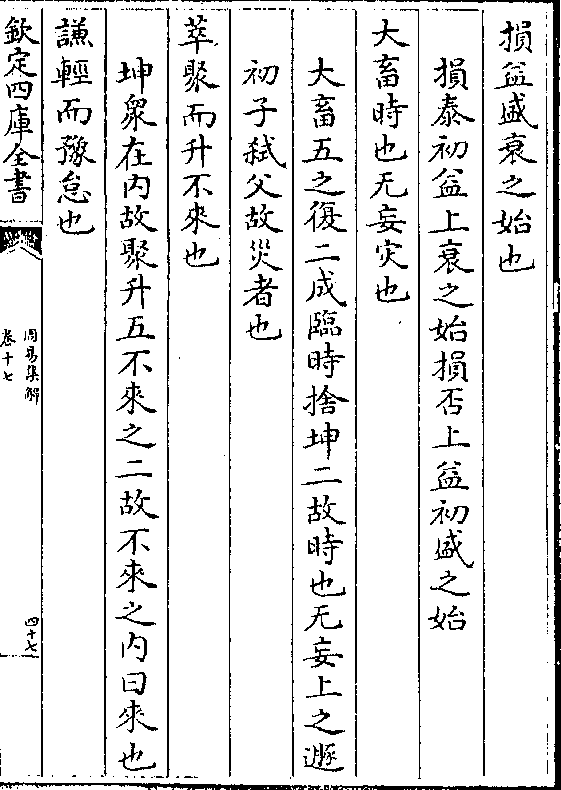 損益盛衰之始也
損泰初益上衰之始損否上益初盛之始
大畜時也无妄灾也
大畜五之復二成臨時捨坤二故時也无妄上之遯
初子弑父故災者也
萃聚而升不來也
坤衆在内故聚升五不來之二故不來之内曰來也
謙輕而豫怠也
欽定四庫全書
周易集解
卷十七
四十七